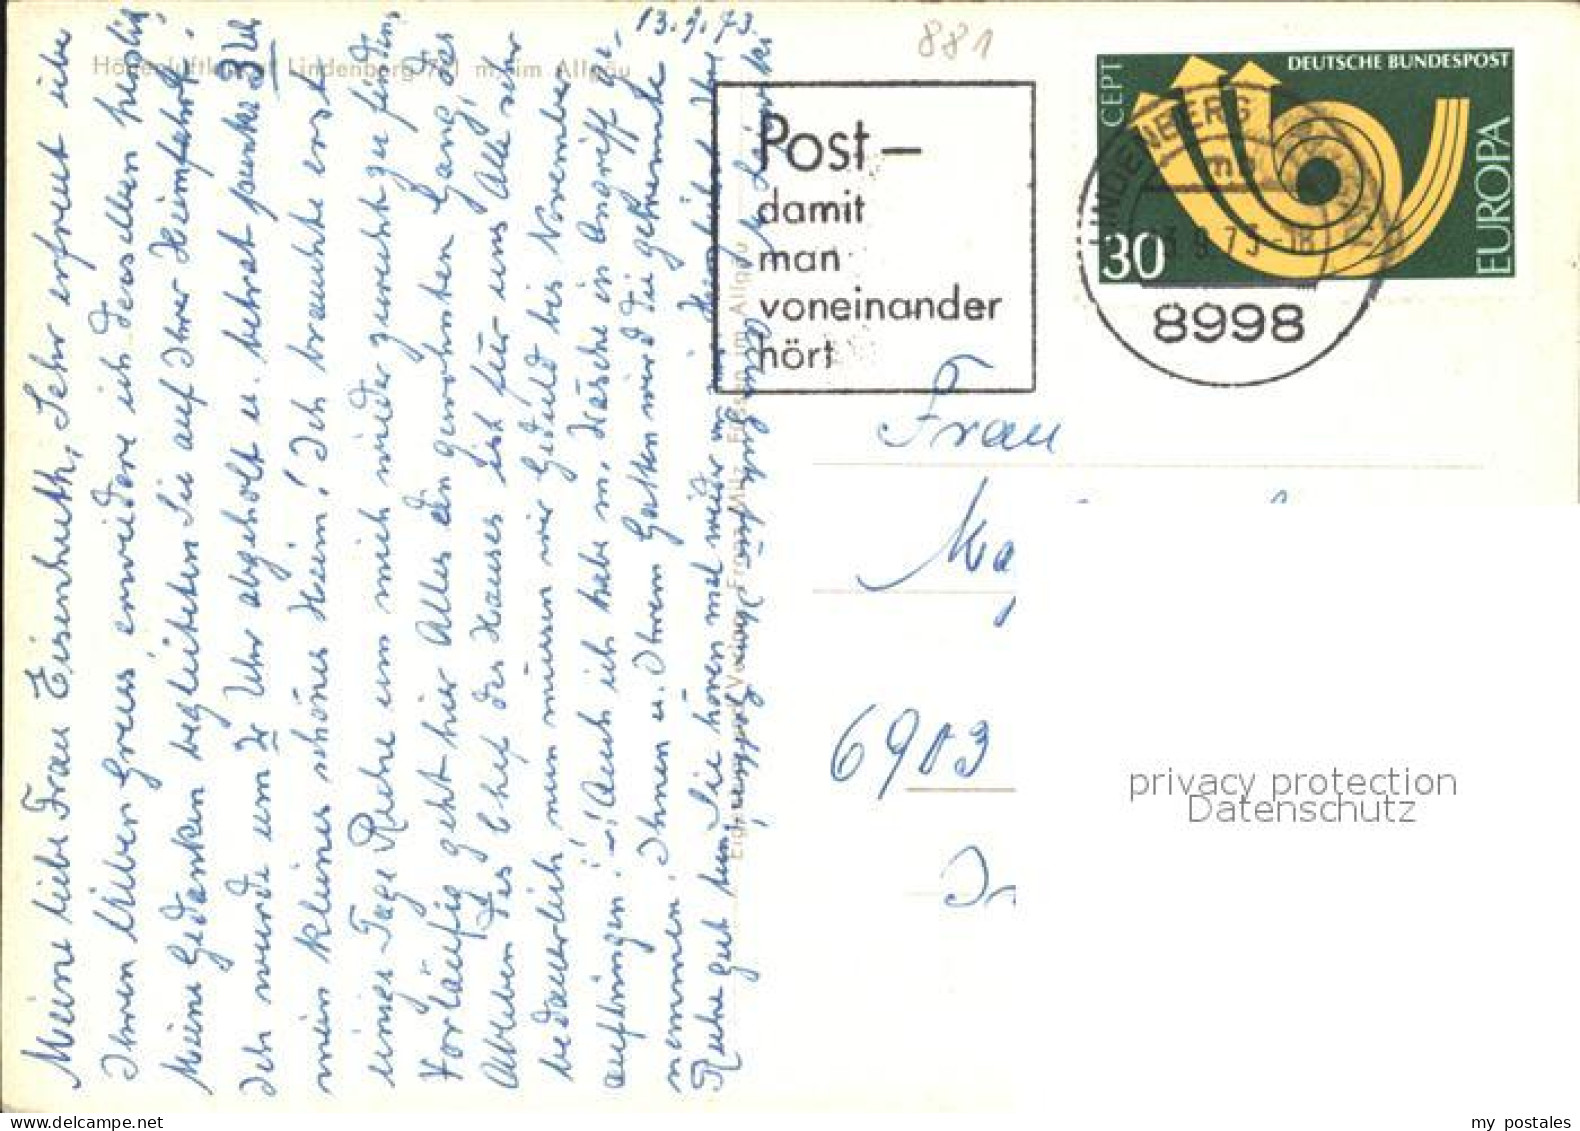 13.9.73.
881
Höhenluftkurort Lindenberg im Allgäu
Meine liebe Frau Eisenhuth, Sehr erfreut über
Ihren lieben Gruss erwidere ich denselben herzlich,
Meine Gedanken begleiteten Sie auf Ihrer Heimfahrt.
Ich wurde um 2 Uhr abgeholt u. betrat punkt 3 Uhr
mein kleines schönes Heim! Ich brauchte erst
einige Tage Ruhe um mich wieder zurecht zu finden,
Vorläufig geht hier Alles den gewohnten Gang, das
Ableben des Chef des Hauses ist für uns Alle sehr
bedauerlich nun müssen wir Geduld bis November
aufbringen! Auch ich habe m. Wäsche in Angriff ge-
nommen! Ihnen u. Ihrem Gatten wird die gehrenkte
Ruhe gut tun, Sie hören mal wieder von mir
Post –
damit
man
voneinander
hört
DEUTSCHE BUNDESPOST
CEPT
EUROPA
30
LINDENBERG
8998
Frau
6903
privacy protection
Datenschutz
my postales